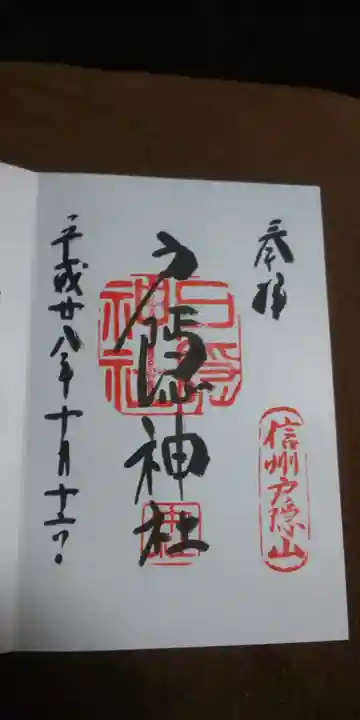 奉拝
信州戸隠山
戸隠神社
戸隠
神社
平成廿八年十月十六日